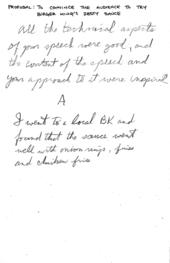 PROPOSAL: TO CONVINCE THE AUDIENCE TO TRY
BURGER KING'S ZESTY SAUCE
All the technical aspects
of your speech were good, and
the content of the speech and
your approach to it were inspired
A
I went to a local BK and
found that the sauce went
well with onion rings, fries
and chicken fries